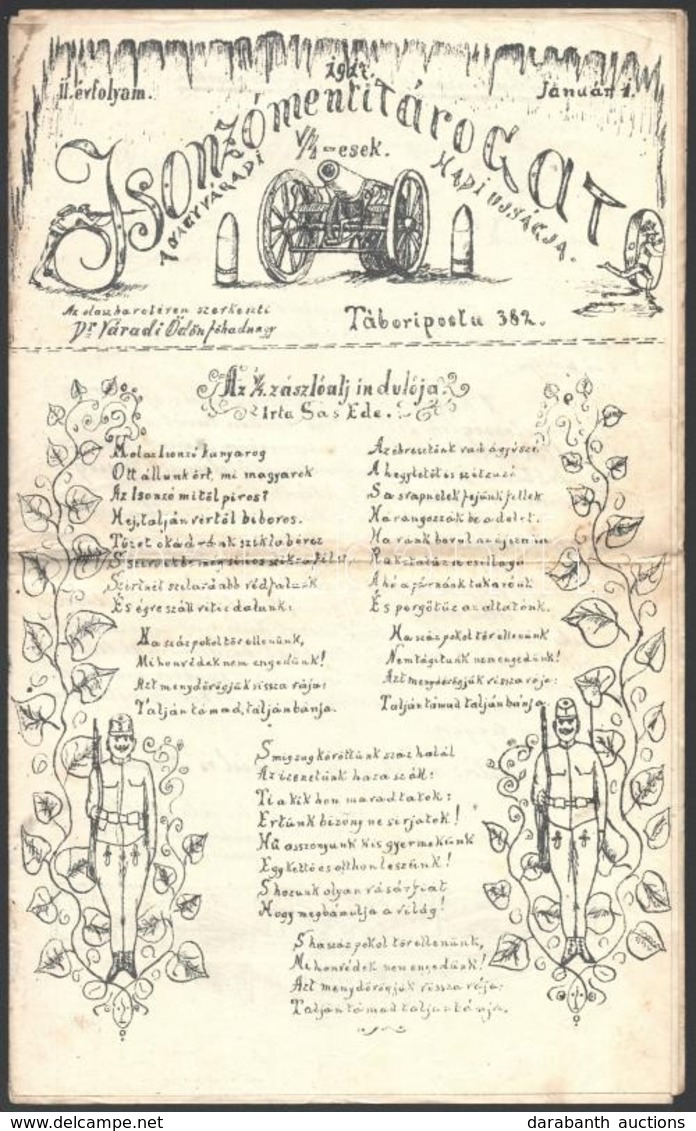 1917.
II. évfolyam.
Január 1.
Isonzómenti tárogató
A nagyváradi V/4-esek. hadi ujságja.
Az olaszharctéren szerkeszti
Dr Váradi Ödön főhadnagy
Táboriposta 382.
Az V/4. zászlóalj indulója.
Irta Sas Ede.
Hol az Isonzó kanyarog
Ott állunk őrt, mi magyarok
Az Isonzó mitől piros?
Hej, talján vértől biboros.
Tüzet okád ránk sziklabérc
Szivünk
szilárdabb védfalunk
És égre száll vitéz dalunk:
Ha száz pokol tör ellenünk,
Mi honvédek nem engedünk!
Azt menydörögjük vissza rája:
Talján támad, talján bánja.
Az ébresztőnk vad ágyúszó
A hegytetőt is szétzuzó
S a srapnelek fejünk felett
Harangozzák be a delet.
Ha ránk borul az éjszaka
Rakéta lesz csillaga
A hó a párnánk takarónk
És pergőtüz az altatónk.
Ha száz pokol tör ellenünk
Nem tágitunk nem engedünk!
Azt menydörögjük vissza rája:
Talján támad talján bánja.
S mig zug köröttünk száz halál
Az izenetünk haza száll:
Ti akik hon maradtatok:
Értünk bizony ne sirjatok!
Hű asszonyunk kis gyermekünk
Egykettő és otthon leszünk!
S hozunk olyan vásárfiat
Hogy megbámulja a világ!
S ha száz pokol tör ellenünk,
Mi honvédek nem engedünk!
Azt menydörögjük vissza rája:
Talján támad talján bánja.
darabanth auctions